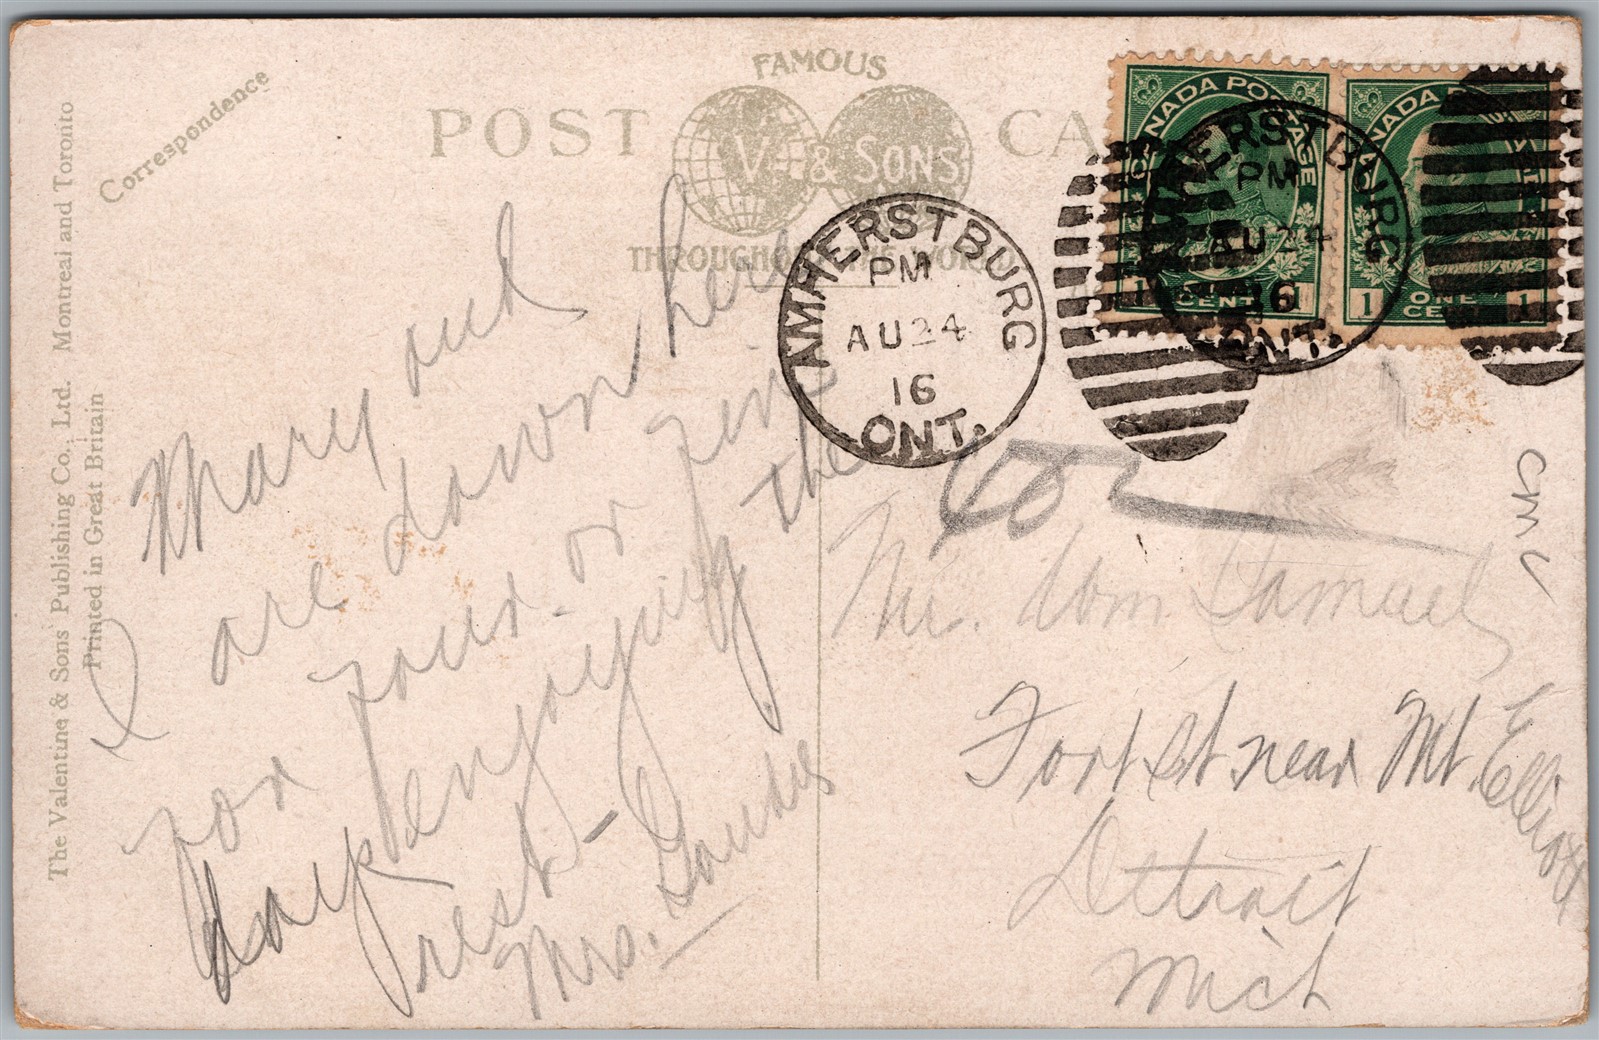 Correspondence
FAMOUS
POST CA
V & SONS
THROUGHOUT THE WORLD
The Valentine & Sons' Publishing Co., Ltd. Montreal and Toronto
Printed in Great Britain
CANADA POSTAGE
1 ONE CENT 1
CANADA POSTAGE
1 ONE CENT 1
AMHERSTBURG
PM
AU 24
16
ONT.
AMHERSTBURG
PM
AU 24
16
ONT.
Mary and I
are down here
for four or five
days enjoying the
rest -
Mrs.
Mr. Wm Samuel,
Fort St near Mt. Elliott
Detroit
Mich